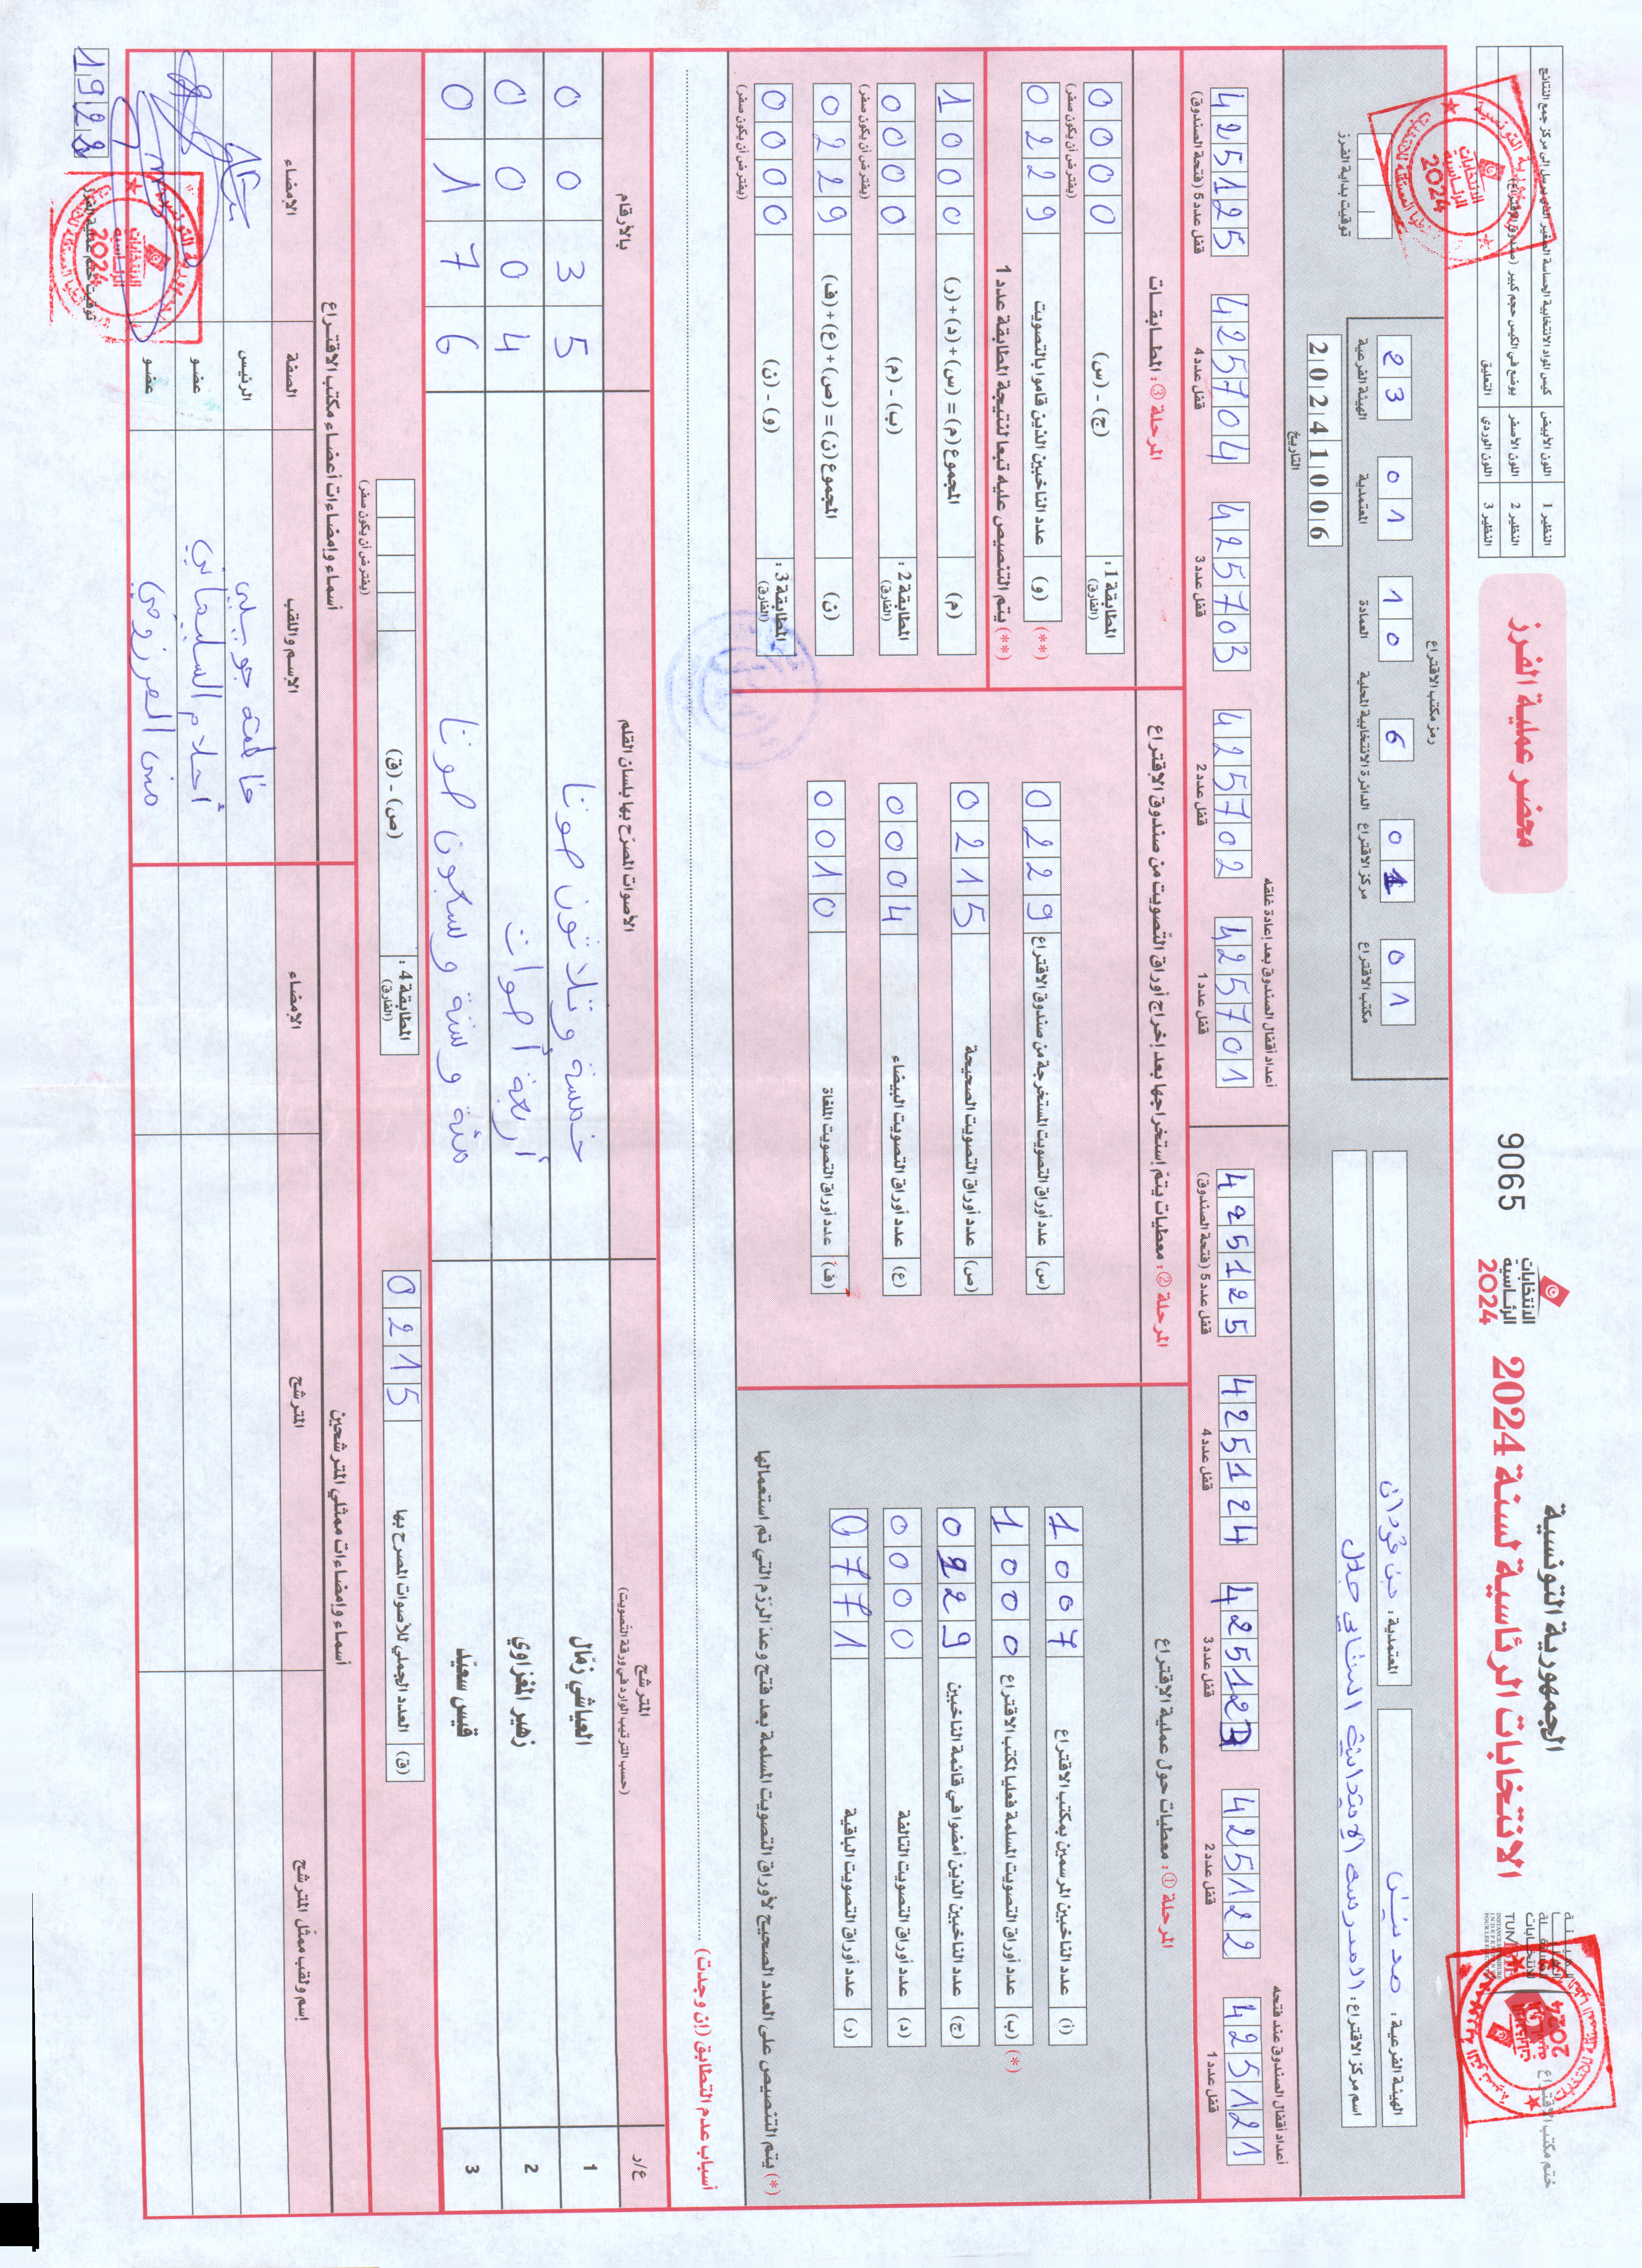 الجمهورية التونسية
الانتخابات الرئاسية لسنة 2024
الانتخابات
الرئاسية
2024
9065
محضر عملية الفرز
النظير 1 اللون الأبيض كيس المواد الانتخابية الحساسة الصغير
النظير 2 اللون الأصفر يوضع في الكيس حجم كبير
النظير 3 اللون الوردي التعليق
ختم مكتب الاقتراع
الهيئة الفرعية : مدنين
المعتمدية :
اسم مركز الاقتراع : المدرسة الابتدائية
رمز مكتب الاقتراع
23 01 10 6 01 01
الهيئة الفرعية المعتمدية العمادة الدائرة الانتخابية المحلية مركز الاقتراع مكتب الاقتراع
20241006
التاريخ
توقيت بداية الفرز
أعداد أقفال الصندوق عند فتحه
425121 425122 425123 425124 425125
قفل عدد 1 قفل عدد 2 قفل عدد 3 قفل عدد 4 قفل عدد 5 (فتحة الصندوق)
أعداد أقفال الصندوق بعد إعادة غلقه
425701 425702 425703 425704 425125
قفل عدد 1 قفل عدد 2 قفل عدد 3 قفل عدد 4 قفل عدد 5 (فتحة الصندوق)
المرحلة ① : معطيات حول عملية الاقتراع
(أ) عدد الناخبين المرسمين بمكتب الاقتراع 1007
(*) (ب) عدد أوراق التصويت المسلمة فعليا لمكتب الاقتراع 1000
(ج) عدد الناخبين الذين أمضوا في قائمة الناخبين 0229
(د) عدد أوراق التصويت التالفة 0000
(ر) عدد أوراق التصويت الباقية 0771
(*) يتم التنصيص على العدد الصحيح لأوراق التصويت المسلمة بعد فتح وعد الرزم التي تم استعمالها
المرحلة ② : معطيات يتم إستخراجها بعد إخراج أوراق التصويت من صندوق الاقتراع
(س) عدد أوراق التصويت المستخرجة من صندوق الاقتراع 0229
(ص) عدد أوراق التصويت الصحيحة 0215
(ع) عدد أوراق التصويت البيضاء 0004
(ف) عدد أوراق التصويت الملغاة 0010
المرحلة ③ : المطابقات
المطابقة 1 : (الفارق) (ج) - (س) 0000
(يفترض أن يكون صفر)
(**) (و) عدد الناخبين الذين قاموا بالتصويت 0229
(**) يتم التنصيص عليه تبعا لنتيجة المطابقة عدد 1
(م) المجموع (م) = (س) + (د) + (ر) 1000
المطابقة 2 : (الفارق) (ب) - (م) 0000
(يفترض أن يكون صفر)
(ن) المجموع (ن) = (ص) + (ع) + (ف) 0229
المطابقة 3 : (الفارق) (و) - (ن) 0000
(يفترض أن يكون صفر)
أسباب عدم التطابق (إن وجدت)
ع/ر المترشح الأصوات المصرّح بها بلسان القلم بالأرقام
(حسب الترتيب الوارد في ورقة التصويت)
1 العياشي زمّال خمسة وثلاثون صوتا 0035
2 زهير المغزاوي أربعة أصوات 0004
3 قيس سعيّد مئة وستة وسبعون صوتا 0176
(ق) العدد الجملي للأصوات المصرح بها 0215
المطابقة 4 : (الفارق) (ص) - (ق)
(يفترض أن يكون صفر)
أسماء وإمضاءات ممثلي المترشحين
إسم ولقب ممثل المترشح المترشح الإمضاء
أسماء وإمضاءات أعضاء مكتب الاقتراع
الإسم واللقب الصفة الإمضاء
فاطمة الرئيس
أحلام السليماني عضو
منى المرزوقي عضو
توقيت ختم عملية الفرز